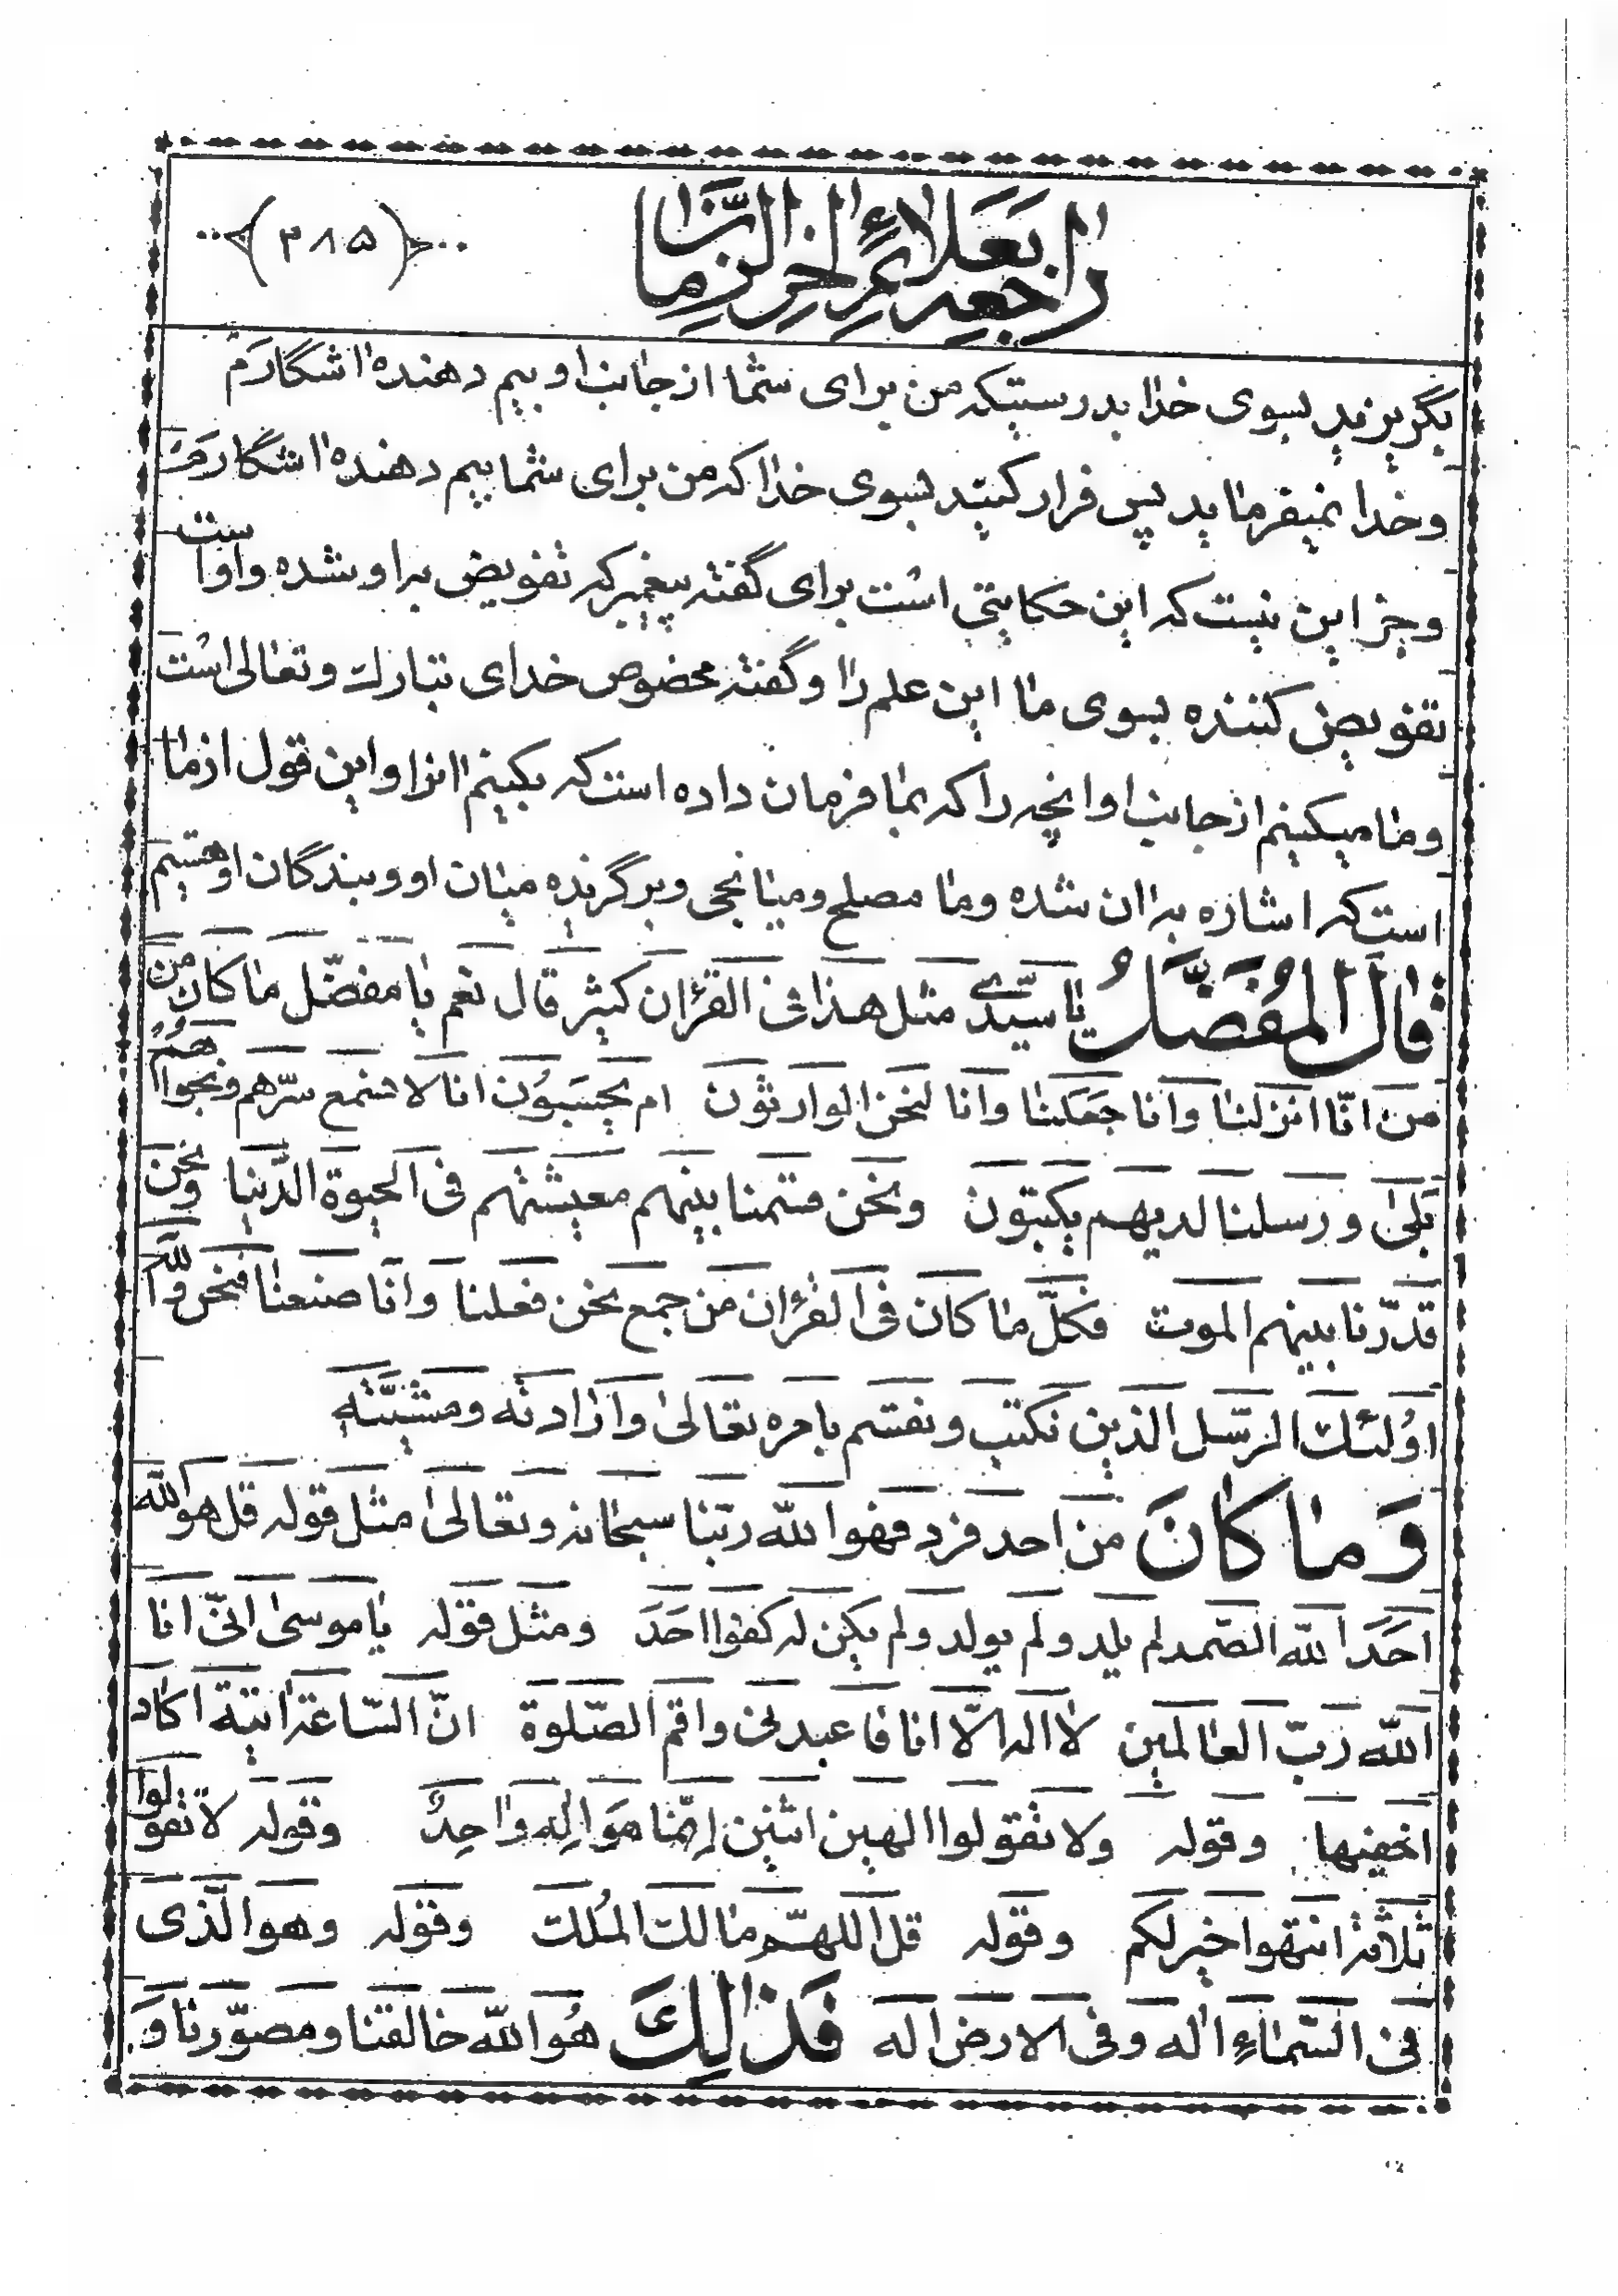 راجعه بعلائم اخر الزمان
(۳۸۵)
بگریزید بسوی خدا بدرستیکه من برای شما از جانب او بیم دهنده اشگارم
وخدا نمیفرماید پس فرار کنید بسوی خدا که من برای شما بیم دهنده اشگارم
وجز این نیست که این حکایتی است برای گفته پیغمبر که تفویض براو شده واواست
تفویض کننده بسوی ما این علم را وگفته مخصوص خدای تبارک وتعالی است
وما میکنیم از جانب او انچه را که بما فرمان داده است که بکنیم انرا واین قول از ما
است که اشاره بران شده وما مصلح ومیانجی وبرگزیده میان او وبندگان او هستیم
قال المفضل یا سیّدی مثل هذا فی القرٔان کثیر قال نعم یا مفضّل ما کان من
من انّا انزلنا وانا جعلنا وانا لنحن الوارثون ام یحسبون انا لا نسمع سرّهم ونجواهم
بلیٰ ورسلنا لدیهم یکتبون ونحن قسمنا بینهم معیشتهم فی الحیوة الدّنیا ونحن
قدّرنا بینهم الموت فکلّ ما کان فی القرٔان من جمع نحن فعلنا وانا صنعنا فنحن والله
اولئک الرّسل الذین نکتب ونقسم بامره تعالیٰ وارادته ومشیّته
وَما کانَ من احد فرد فهو الله ربّنا سبحانه وتعالیٰ مثل قوله قل هو الله
احَد الله الصّمد لم یلد ولم یولد ولم یکن له کفوا احَد ومثل قوله یا موسیٰ انّی انا
الله ربّ العالمین لا اله الّا انا فاعبدنی واقم الصّلوة انّ السّاعة اتیة اکاد
اخفیها وقوله ولا تقولوا الهین اثنین اِنّما هَوَ اِله واحِدٌ وقوله لا تقولوا
ثلاثة انتهوا خیر لکم وقوله قل اللهمّ مالک المُلک وقوله وهو الّذی
فی السّماءِ اله وفی الارض اله فَذٰلِکَ هُو الله خالقنا ومصوّرنا وَ